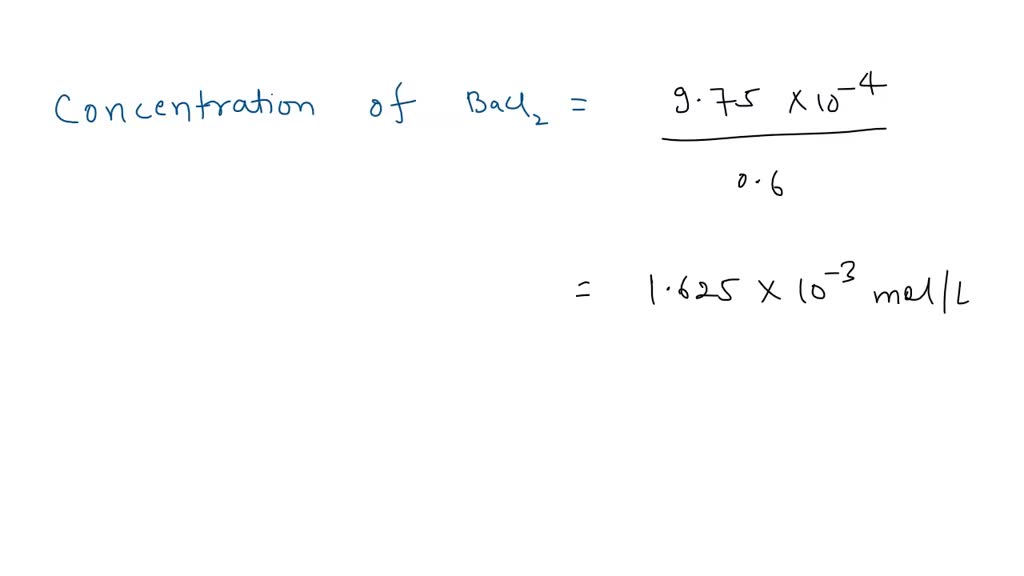 Concentration of BaCl₂ = 9.75 × 10⁻⁴
0.6
= 1.625 × 10⁻³ mol/L